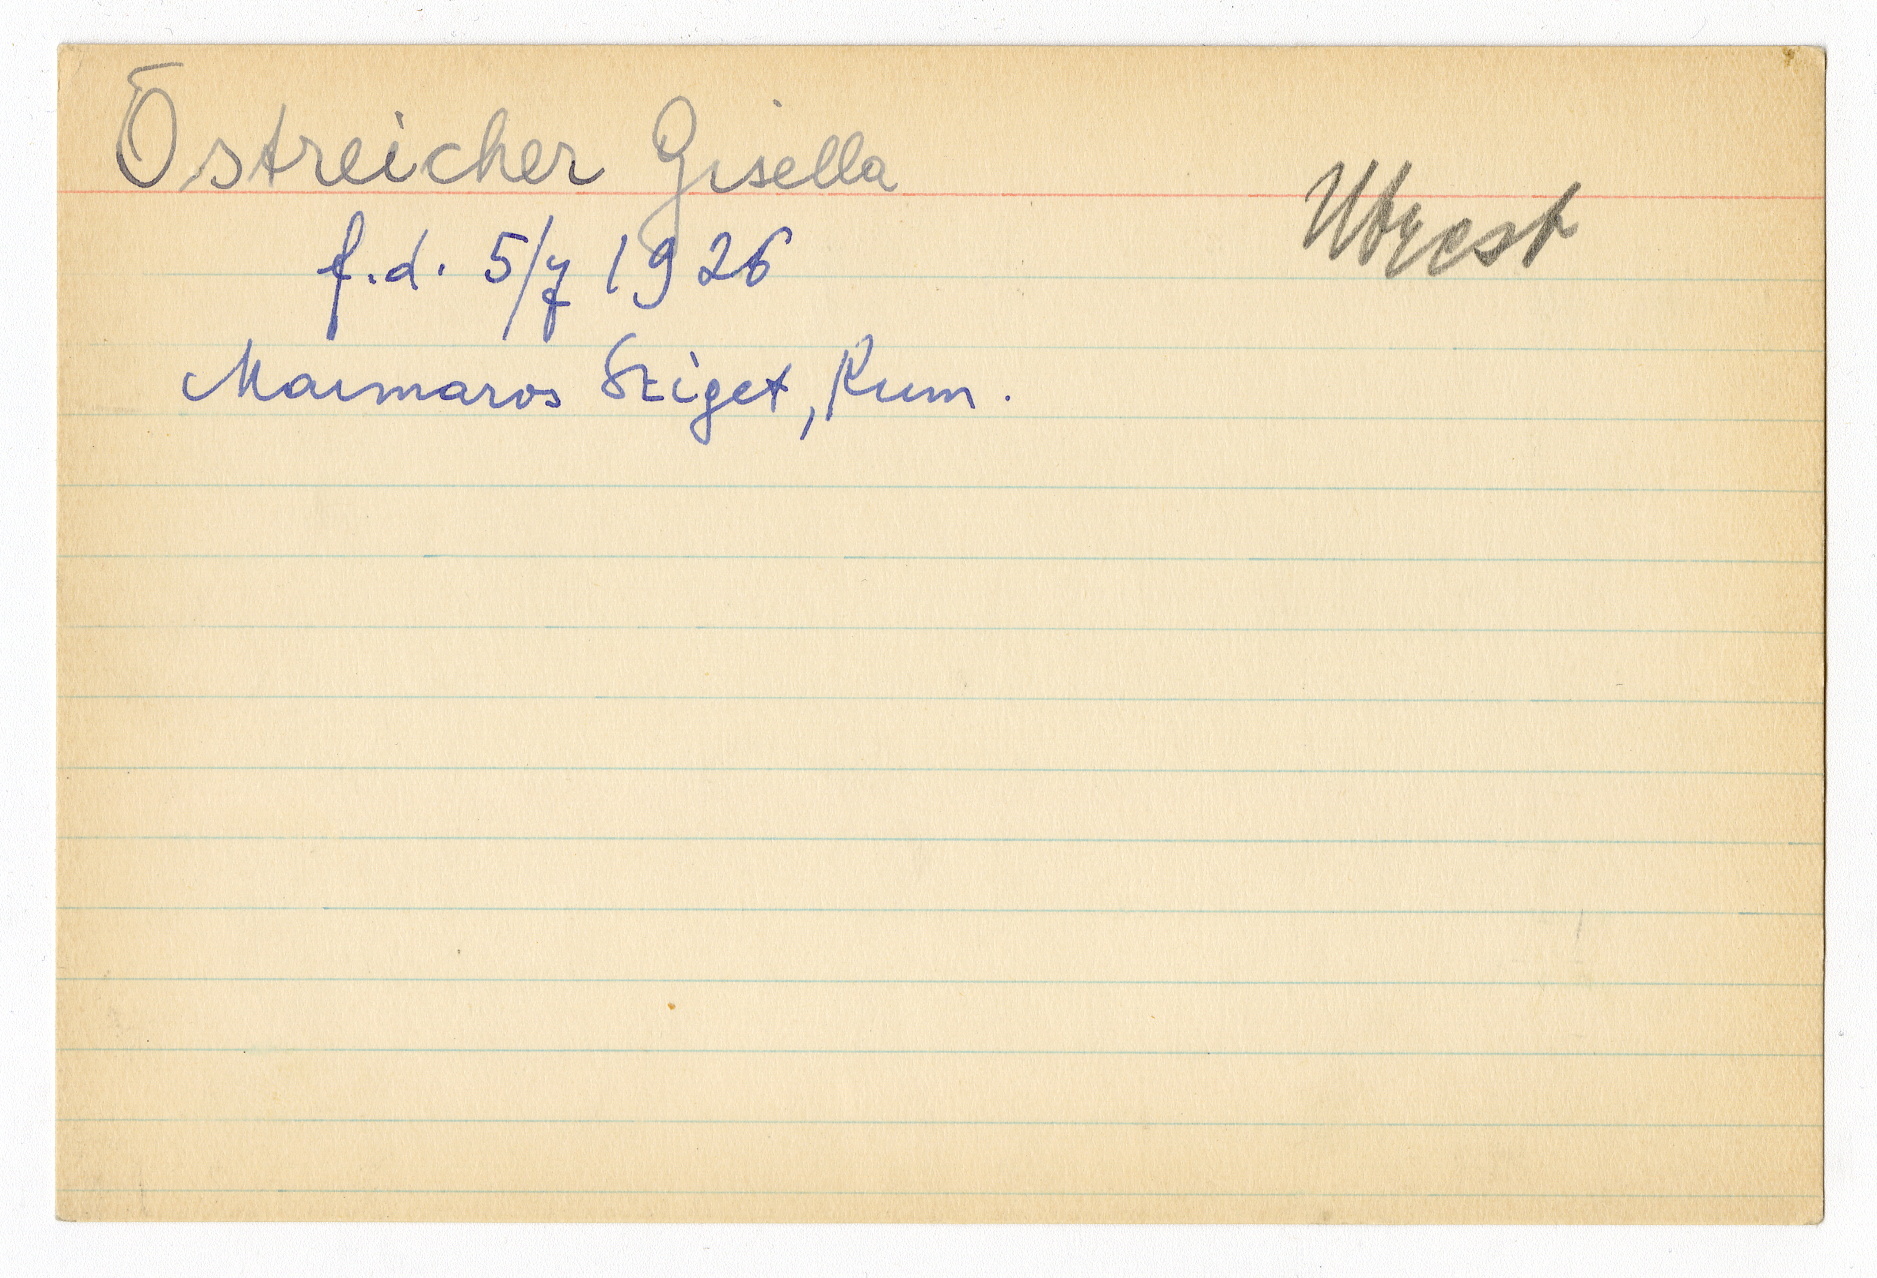 Östreicher Gisella
Utrest
f.d. 5/7 1926
Marmaros Sziget, Rum.